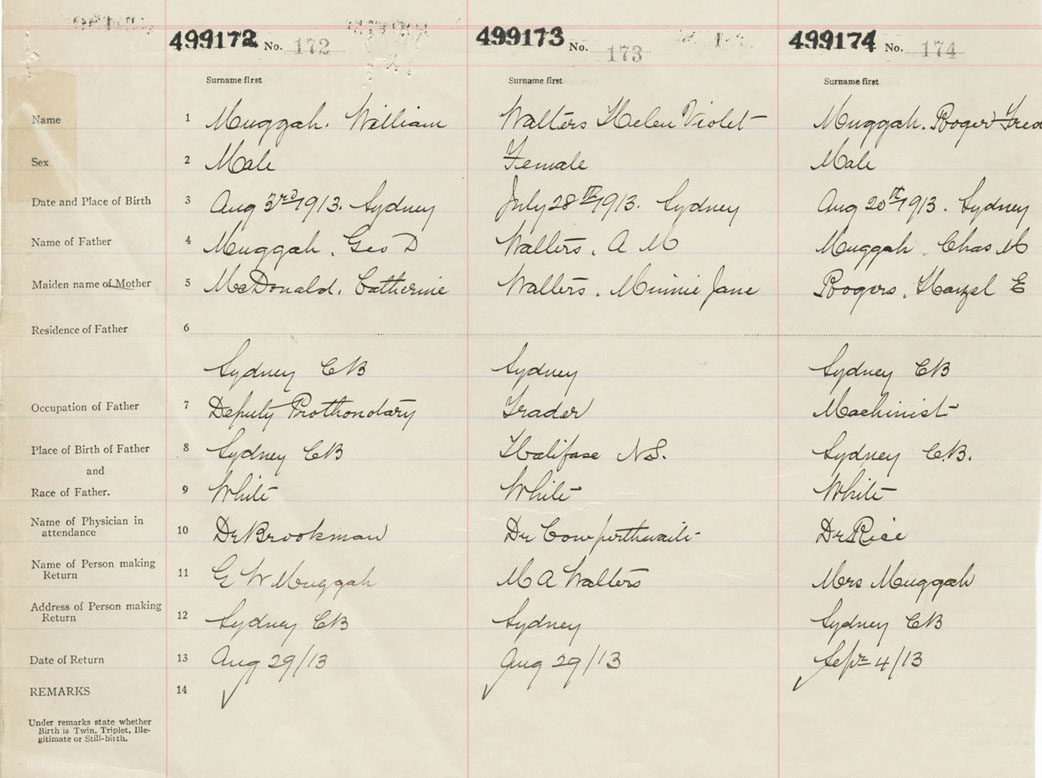 499172 No. 172 499173 No. 173 499174 No. 174
Surname first Surname first Surname first
Name 1 Muggah. William Walters Helen Violet Muggah. Roger Fred
Sex 2 Male Female Male
Date and Place of Birth 3 Aug 3rd 1913. Sydney July 28th 1913. Sydney Aug 20th 1913. Sydney
Name of Father 4 Muggah, Geo D Walters, A M Muggah Chas M
Maiden name of Mother 5 McDonald, Catherine Walters, Minnie Jane Rogers, Hazel E
Residence of Father 6
Sydney CB Sydney Sydney CB
Occupation of Father 7 Deputy Prothonotary Trader Machinist
Place of Birth of Father 8 Sydney CB Halifax N.S. Sydney C.B.
and
Race of Father. 9 White White White
Name of Physician in
attendance 10 Dr Brookman Dr Cowperthwaite Dr Rice
Name of Person making
Return 11 G W Muggah M A Walters Mrs Muggah
Address of Person making
Return 12 Sydney CB Sydney Sydney CB
Date of Return 13 Aug 29/13 Aug 29/13 Sept 4/13
REMARKS 14
Under remarks state whether
Birth is Twin, Triplet, Ille-
gitimate or Still-bith.